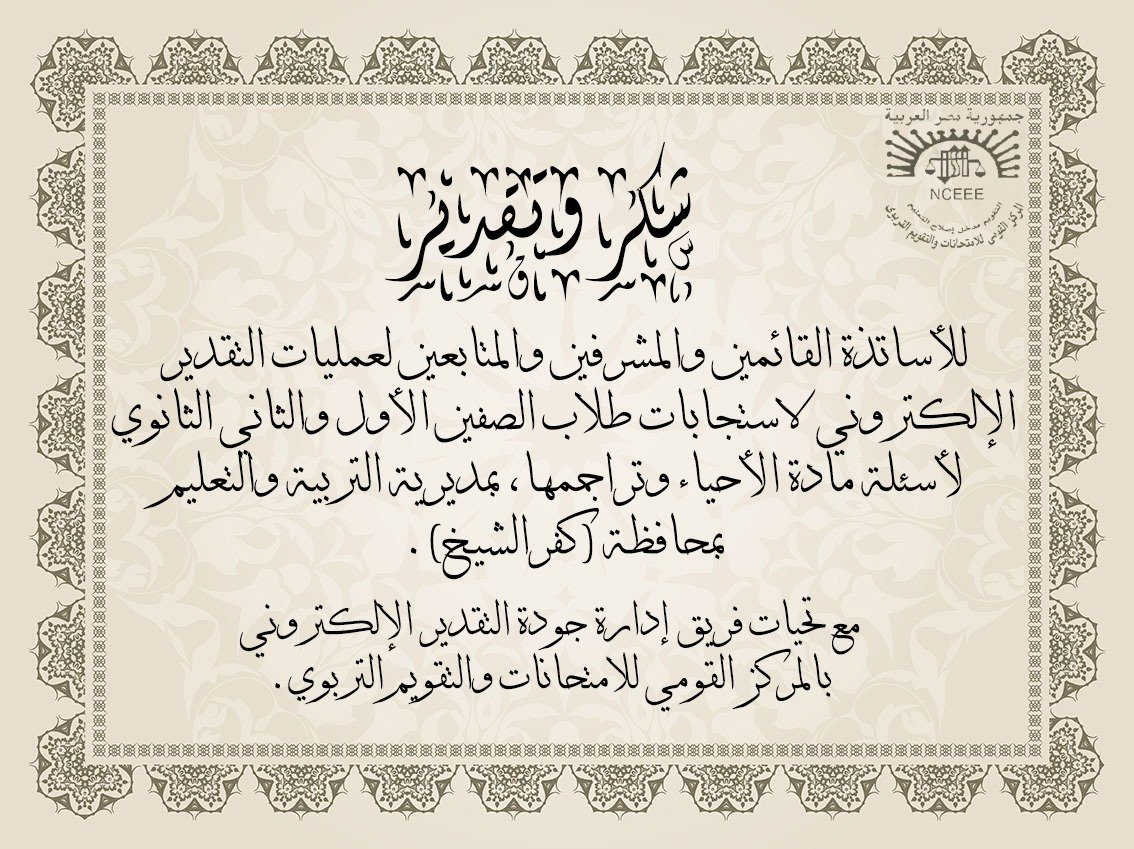 جمهورية مصر العربية
NCEEE
التقويم مدخل إصلاح التعليم
المركز القومي للامتحانات والتقويم التربوي
شكر وتقدير
للأساتذة القائمين والمشرفين والمتابعين لعمليات التقدير
الإلكتروني لاستجابات طلاب الصفين الأول والثاني الثانوي
لأسئلة مادة الأحياء وتراجمها ، بمديرية التربية والتعليم
بمحافظة (كفر الشيخ) .
مع تحيات فريق إدارة جودة التقدير الإلكتروني
بالمركز القومي للامتحانات والتقويم التربوي .